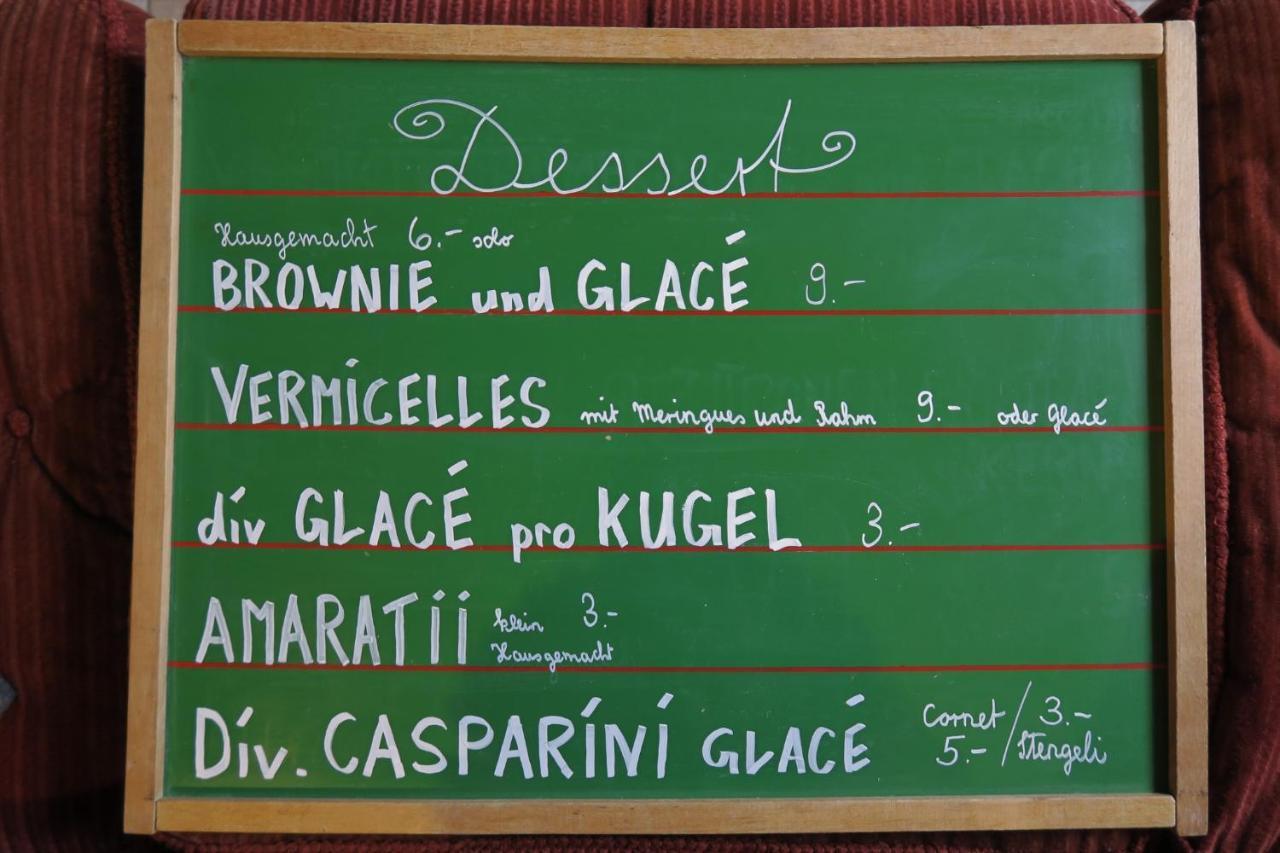 Dessert
Hausgemacht 6.- solo
BROWNIE und GLACÉ 9.-
VERMICELLES mit Meringues und Rahm 9.- oder Glacé
div GLACÉ pro KUGEL 3.-
AMARATii klein 3.-
Hausgemacht
Div. CASPARINI GLACÉ Cornet / 3.-
5.- / Stengeli